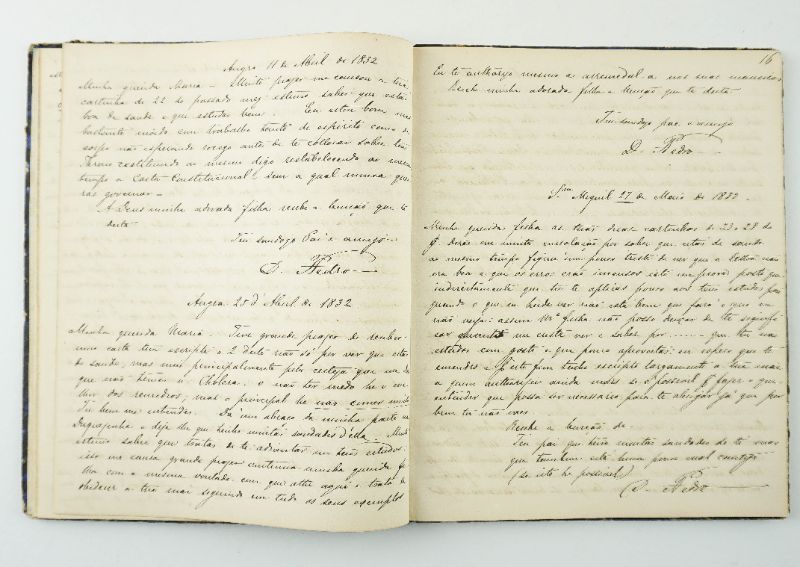 Angra 11 de Abril de 1832
Minha querida Maria - Muito prazer me causou a tua
cartinha de 22 do passado mez estimo saber que estás
boa de saude e que estudas bem. Eu estou bom mas
bastante moido com trabalho tanto de espirito como de
corpo não esperando socego antes de te collocar sobre teu
Throno restituindo ao mesmo digo restabelecendo ao mesmo
tempo a Carta Constitucional - sem a qual nunca que-
ras governar -
A Deus minha adorada filha recebe a benção que te
deita
Teu saudozo Pai e amigo -
D. Pedro
Angra 25 d'Abril de 1832
Minha querida Maria. Tive grande prazer de receber
uma carta tua escripta a 2 deste não só por ver que estas
de saude, mas mui principalmente pela certeza que me da
que não tens a Cholera. o não ter medo he o me-
lhor dos remedios; mas o principal he nao comer muito
Tu bem me entendes. Da um abraço da minha parte na
e dize lhe que tenho muitas saudades d'ella. Muito
estimo saber que tratas de te adiantar em teus estudos.
isso me causa grande prazer continua minha querida fi-
lha com a mesma vontade com que athe aqui e trata de
obedecer a tua mai seguindo em tudo os seus exemplos
16
Eu te authorizo mesmo a arremedal a nas suas maneiras
Recebe minha adorada filha a benção que te deita
Teu saudozo pae e amigo
D. Pedro
S. Miguel 27 de Maio de 1832
Minha querida filha as tuas duas cartinhas de 23 e 28 do
p. derão me muita consolação por saber que estas de saude
ao mesmo tempo fiquei um pouco triste de ver que a lettra não
era boa e que os erros erão immensos isto me prova posto que
indirectamente que tu te aplicas pouco aos teus estudos pois
quando o que eu heide ver não está bem que fará o que eu
não vejo: assim Mª filha não posso deixar de te
que me custa ver e saber por ..... que tu não
estudas com gosto e que pouco aproveitas: eu espero que te
emendes e p. este fim tenho escripto largamente a tua mai
a quem authorizei ainda mais se é possivel p. fazer o que
entender que possa ser necessario para te obrigar já que por
bem tu não vaes
Recebe a benção de
Teu pai que tem muitas saudades de te ver
que tambem está hum pouco mal comtigo
(se isto he possivel)
D. Pedro